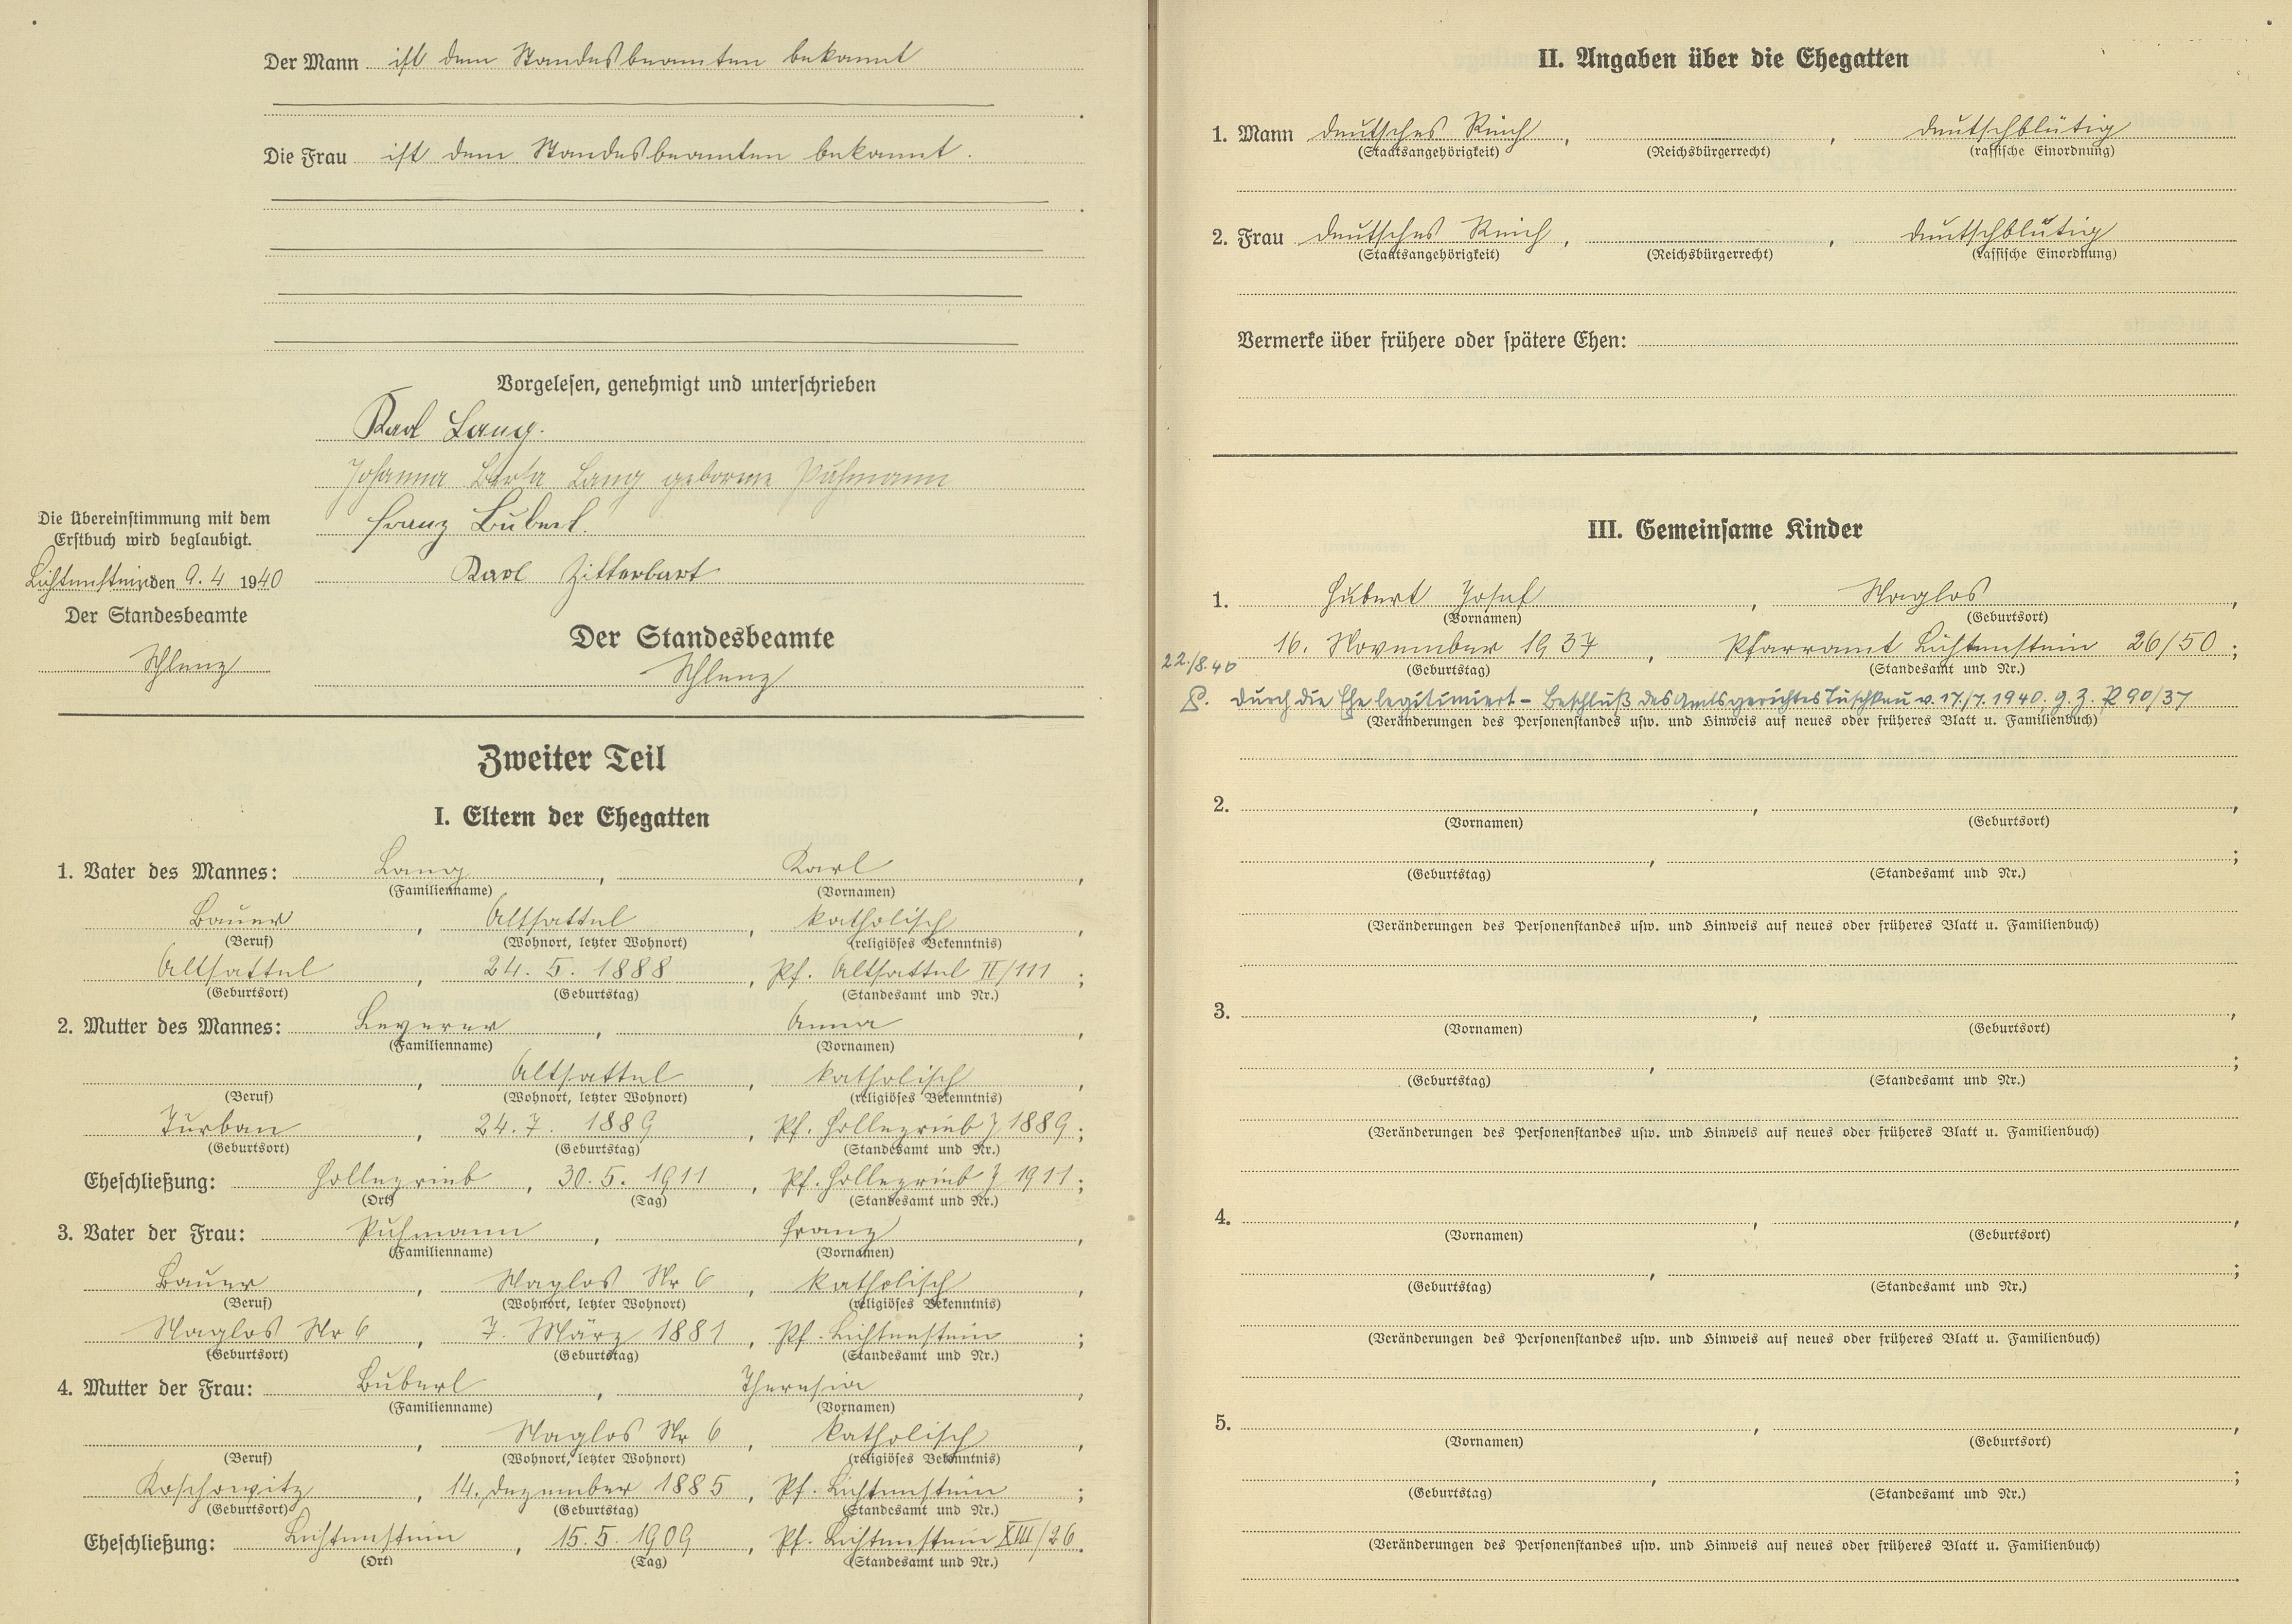 Der Mann ist dem Standesbeamten bekannt
Die Frau ist dem Standesbeamten bekannt.
Vorgelesen, genehmigt und unterschrieben
Karl Lang.
Johanna Berta Lang geborene Pühmann
Franz Buberl.
Karl Zitterbart
Die Übereinstimmung mit dem
Erstbuch wird beglaubigt.
Lichtenstein, den 9. 4 1940
Der Standesbeamte
Schlenz
Der Standesbeamte
Schlenz
Zweiter Teil
I. Eltern der Ehegatten
1. Vater des Mannes: Lang, Karl,
(Familienname) (Vornamen)
Bauer, Altsattel, katholisch,
(Beruf) (Wohnort, letzter Wohnort) (religiöses Bekenntnis)
Altsattel, 24. 5. 1888, Pf. Altsattel II/111;
(Geburtsort) (Geburtstag) (Standesamt und Nr.)
2. Mutter des Mannes: Leyerer, Anna,
(Familienname) (Vornamen)
, Altsattel, katholisch,
(Beruf) (Wohnort, letzter Wohnort) (religiöses Bekenntnis)
Turban, 24. 7. 1889, Pf. Hollezrieb J 1889;
(Geburtsort) (Geburtstag) (Standesamt und Nr.)
Eheschließung: Hollezrieb, 30. 5. 1911, Pf. Hollezrieb J 1911;
(Ort) (Tag) (Standesamt und Nr.)
3. Vater der Frau: Pühmann, Franz,
(Familienname) (Vornamen)
Bauer, Naglos Nr 6, katholisch,
(Beruf) (Wohnort, letzter Wohnort) (religiöses Bekenntnis)
Naglos Nr 6, 7. März 1881, Pf. Lichtenstein;
(Geburtsort) (Geburtstag) (Standesamt und Nr.)
4. Mutter der Frau: Buberl, Theresia,
(Familienname) (Vornamen)
, Naglos Nr 6, katholisch,
(Beruf) (Wohnort, letzter Wohnort) (religiöses Bekenntnis)
Koschowitz, 14. Dezember 1885, Pf. Lichtenstein;
(Geburtsort) (Geburtstag) (Standesamt und Nr.)
Eheschließung: Lichtenstein, 15. 5. 1909, Pf. Lichtenstein XIII/26.
(Ort) (Tag) (Standesamt und Nr.)
II. Angaben über die Ehegatten
1. Mann deutsches Reich, , deutschblütig
(Staatsangehörigkeit) (Reichsbürgerrecht) (rassische Einordnung)
2. Frau deutsches Reich, , deutschblütig
(Staatsangehörigkeit) (Reichsbürgerrecht) (rassische Einordnung)
Vermerke über frühere oder spätere Ehen:
III. Gemeinsame Kinder
1. Hubert Josef, Naglos,
(Vornamen) (Geburtsort)
16. November 1937, Pfarramt Lichtenstein 26/50;
(Geburtstag) (Standesamt und Nr.)
22./8. 40
durch die Ehe legitimiert - Beschluß des Amtsgerichtes Tuschkau v. 17./7. 1940, g. Z. P 90/37
(Veränderungen des Personenstandes usw. und Hinweis auf neues oder früheres Blatt u. Familienbuch)
2. , ,
(Vornamen) (Geburtsort)
, ;
(Geburtstag) (Standesamt und Nr.)
(Veränderungen des Personenstandes usw. und Hinweis auf neues oder früheres Blatt u. Familienbuch)
3. , ,
(Vornamen) (Geburtsort)
, ;
(Geburtstag) (Standesamt und Nr.)
(Veränderungen des Personenstandes usw. und Hinweis auf neues oder früheres Blatt u. Familienbuch)
4. , ,
(Vornamen) (Geburtsort)
, ;
(Geburtstag) (Standesamt und Nr.)
(Veränderungen des Personenstandes usw. und Hinweis auf neues oder früheres Blatt u. Familienbuch)
5. , ,
(Vornamen) (Geburtsort)
, ;
(Geburtstag) (Standesamt und Nr.)
(Veränderungen des Personenstandes usw. und Hinweis auf neues oder früheres Blatt u. Familienbuch)